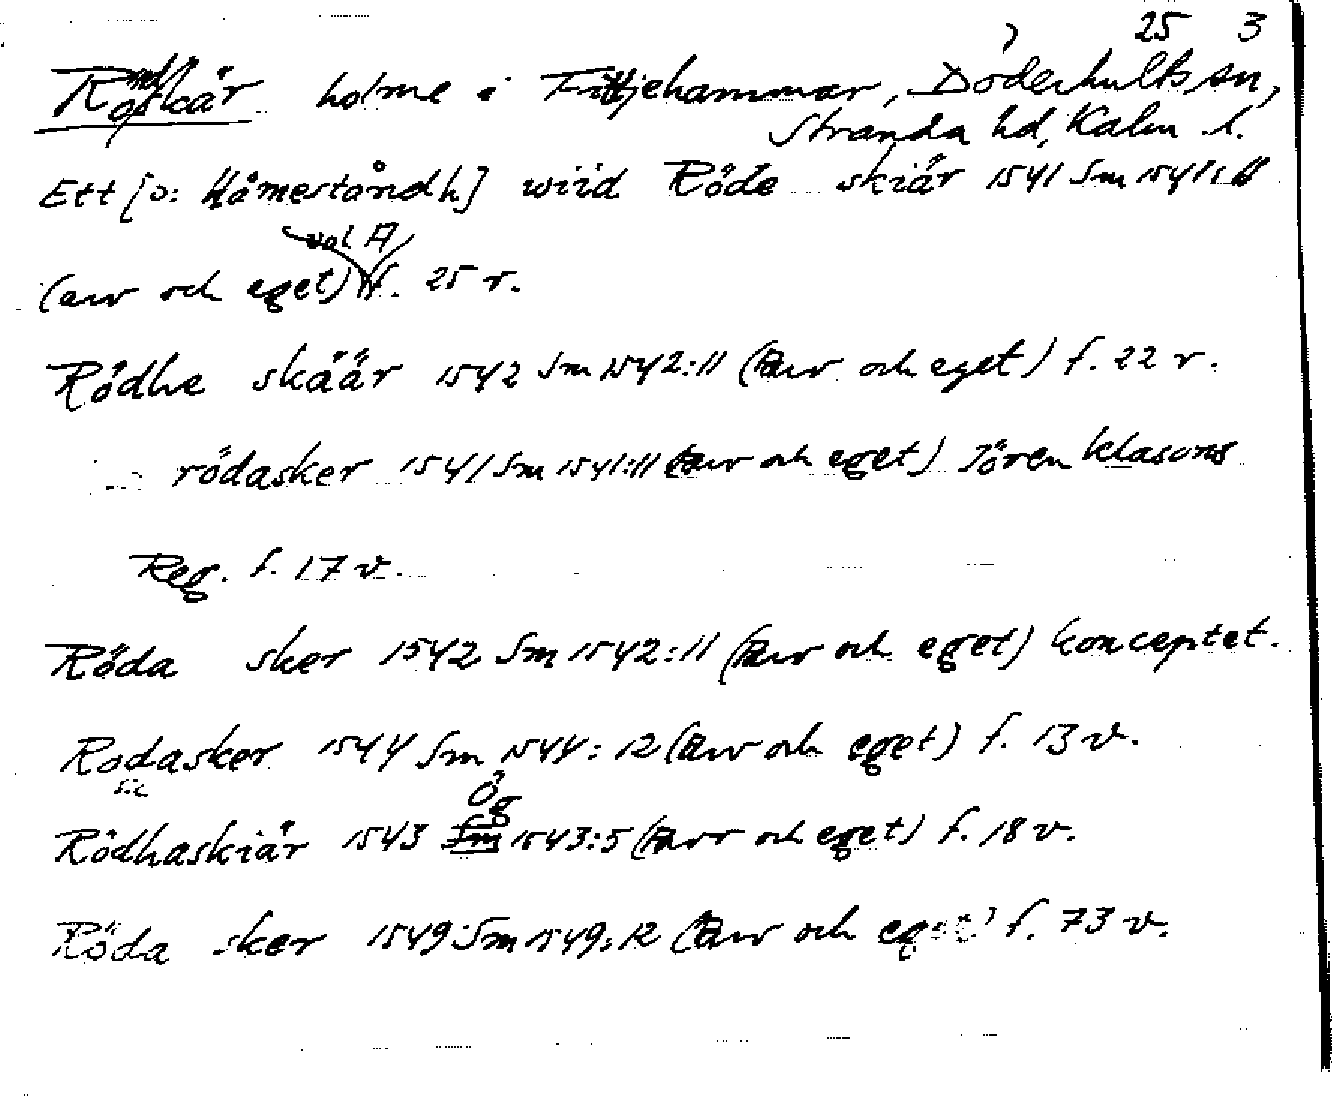 25 3
Rödskär holme i Fittjehammar, Döderhults sn,
Stranda hd, Kalm. l.
Ett [o: Håmestandh] wiid Röde skiär 1541 Sm 1541:11
vol A
(arv och eget) f. 25 r.
Rödhe skäär 1542 Sm 1542:11 (Arv och eget) f. 22 r.
rödasker 1541 Sm 1541:11 (Arv och eget) Jören klasons
Reg. f. 17 v.
Röda sker 1542 Sm 1542:11 (Arv och eget) konceptet.
Rodasker 1544 Sm 1544:12 (Arv och eget) f. 13 v.
sic
Ög
Rödhaskiär 1543 Sm 1543:5 (Arv och eget) f. 18 v.
Röda sker 1549 Sm 1549:12 (Arv och eget) f. 73 v.